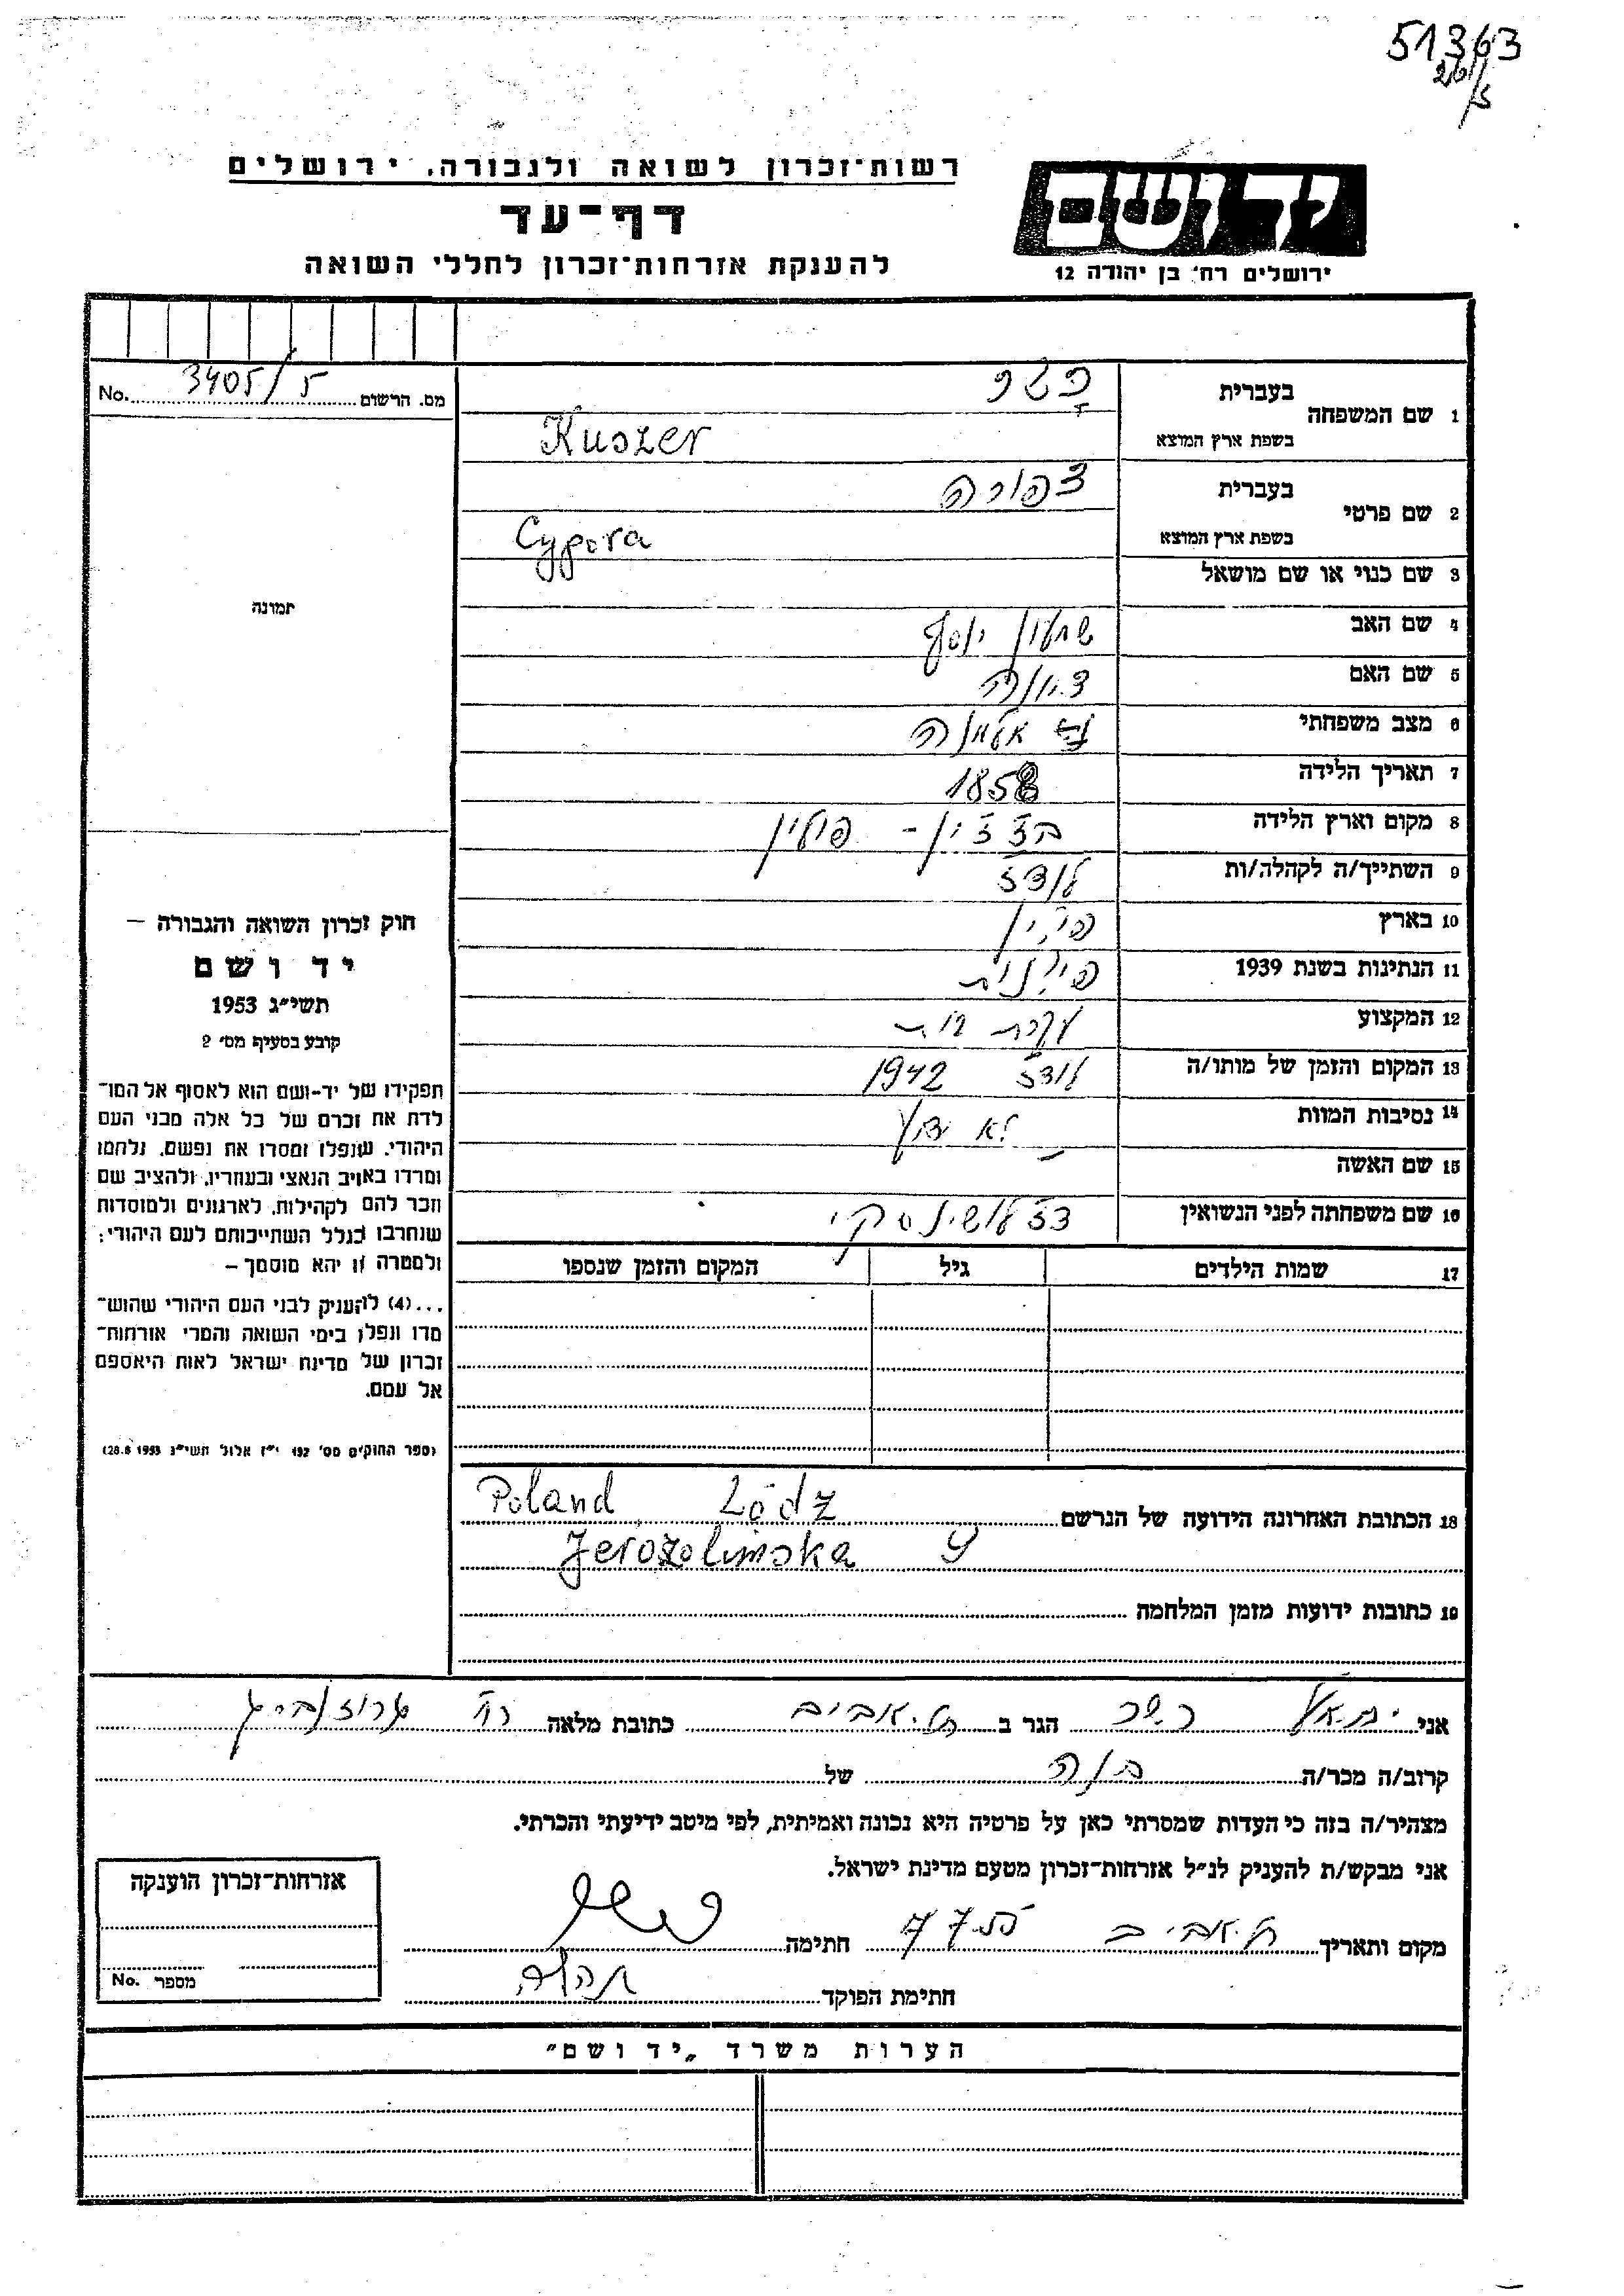 51363
26/5
רשות־זכרון לשואה ולגבורה, ירושלים
דף־עד
להענקת אזרחות־זכרון לחללי השואה
יד ושם
ירושלים רח׳ בן יהודה 12
מס. הרשום 3405/5 No.
1 שם המשפחה
בעברית כשר
בשפת ארץ המוצא Kuszer
2 שם פרטי
בעברית צפורה
בשפת ארץ המוצא Cypora
3 שם כנוי או שם מושאל
4 שם האב שמעון יוסף
5 שם האם
6 מצב משפחתי אלמנה
7 תאריך הלידה 1858
8 מקום וארץ הלידה פולין
9 השתייך/ה לקהלה/ות לודז
10 בארץ פולין
11 הנתינות בשנת 1939 פולנית
12 המקצוע עקרת בית
13 המקום והזמן של מותו/ה לודז 1942
14 נסיבות המוות לא ידוע
15 שם האשה —
16 שם משפחתה לפני הנשואין
17 שמות הילדים גיל המקום והזמן שנספו
תמונה
חוק זכרון השואה והגבורה —
יד ושם
תשי״ג 1953
קובע בסעיף מס׳ 2
תפקידו של יד-ושם הוא לאסוף אל המו־
לדת את זכרם של כל אלה מבני העם
היהודי, שנפלו ומסרו את נפשם, נלחמו
ומרדו באויב הנאצי ובעוזריו, ולהציב שם
וזכר להם לקהילות, לארגונים ולמוסדות
שנחרבו בגלל השתייכותם לעם היהודי;
ולמטרה זו יהא מוסמך —
...(4) להעניק לבני העם היהודי שהוש־
מדו ונפלו בימי השואה והמרי אזרחות־
זכרון של מדינת ישראל לאות היאספם
אל עמם.
(ספר החוקים מס׳ 132 י״ז אלול תשי״ג 28.8.1953)
18 הכתובת האחרונה הידועה של הנרשם Poland Łódź
Jerozolimska 9
19 כתובות ידועות מזמן המלחמה
אני כשר הגר ב תל אביב כתובת מלאה רח׳
קרוב/ה מכר/ה של
מצהיר/ה בזה כי העדות שמסרתי כאן על פרטיה היא נכונה ואמיתית, לפי מיטב ידיעתי והכרתי.
אני מבקש/ת להעניק לנ״ל אזרחות־זכרון מטעם מדינת ישראל.
מקום ותאריך תל אביב 7.7.55 חתימה
חתימת הפוקד
אזרחות־זכרון הוענקה
מספר No.
הערות משרד „יד ושם״